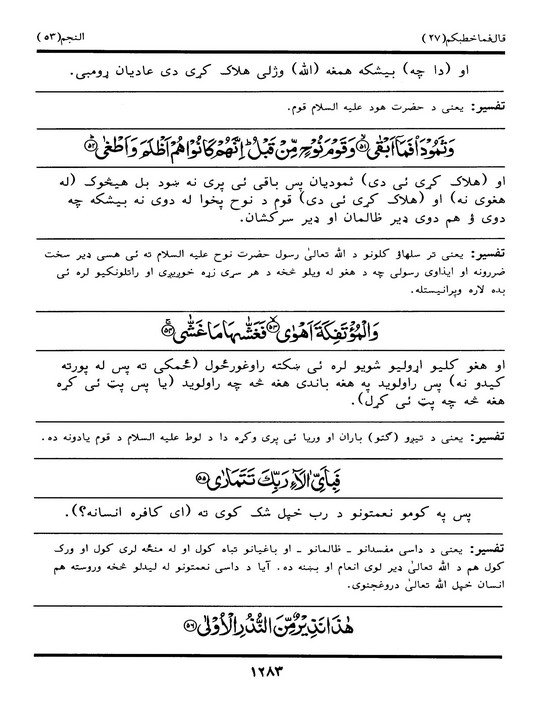 قال فما خطبكم (۲۷) النجم (۵۳)
او (دا چه) بیشکه همغه (الله) وژلی هلاک کړی دی عادیان ړومبی.
تفسیر: یعنی د حضرت هود علیه السلام قوم.
وَثَمُودَا۟ فَمَآ أَبْقَىٰ ۵۱ وَقَوْمَ نُوحٍ مِّن قَبْلُ ۖ إِنَّهُمْ كَانُوا۟ هُمْ أَظْلَمَ وَأَطْغَىٰ ۵۲
او (هلاک کړی ئی دی) ثمودیان پس باقی ئی پری نه ښود بل هیڅوک (له
هغوی نه) او (هلاک کړی ئی دی) قوم د نوح پخوا له دوی نه بیشکه چه
دوی ؤ هم دوی ډیر ظالمان او ډیر سرکشان.
تفسیر: یعنی تر سلهاؤ کلونو د الله تعالیٰ رسول حضرت نوح علیه السلام ته ئی هسی ډیر سخت
ضررونه او ایذاوی رسولی چه د هغو له ویلو څخه د هر سړی زړه خوږیږی او راتلونکیو لره ئی
بده لاره وپرانیستله.
وَٱلْمُؤْتَفِكَةَ أَهْوَىٰ ۵۳ فَغَشَّىٰهَا مَا غَشَّىٰ ۵۴
او هغو کلیو اړولیو شویو لره ئی ښکته راوغورځول (ځمکی ته پس له پورته
کیدو نه) پس راولوید په هغه باندی هغه څه چه راولوید (یا پس پټ ئی کړه
هغه څه چه پټ ئی کړل).
تفسیر: یعنی د تیږو (ګټو) باران او وریا ئی پری وکړه دا د لوط علیه السلام د قوم یادونه ده.
فَبِأَىِّ ءَالَآءِ رَبِّكَ تَتَمَارَىٰ ۵۵
پس په کومو نعمتونو د رب خپل شک کوی ته (ای کافره انسانه؟).
تفسیر: یعنی د داسی مفسدانو ـ ظالمانو ـ او باغیانو تباه کول او له منځه لری کول او ورک
کول هم د الله تعالیٰ ډیر لوی انعام او بښنه ده. آیا د داسی نعمتونو له لیدلو څخه وروسته هم
انسان خپل الله تعالیٰ دروغجنوی.
هَـٰذَا نَذِيرٌ مِّنَ ٱلنُّذُرِ ٱلْأُولَىٰٓ ۵۶
۱۲۸۳